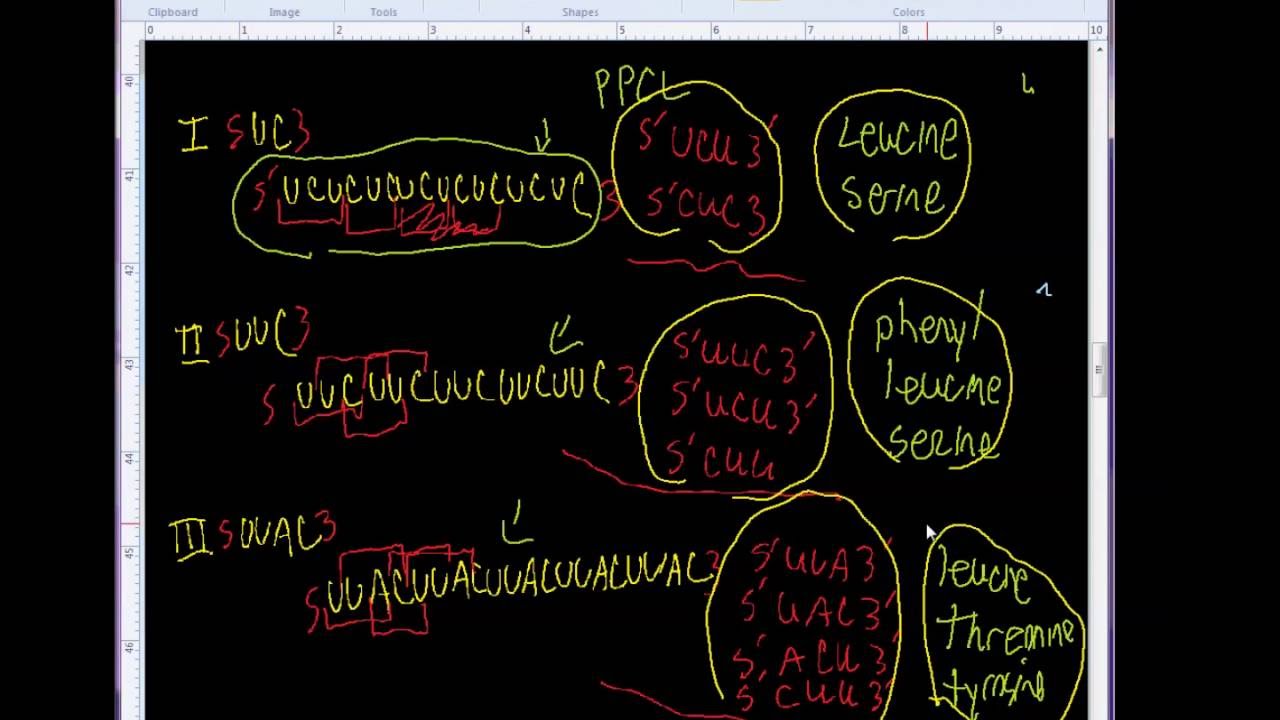 Clipboard Image Tools Shapes Colors
0 1 2 3 4 5 6 7 8 9 10
40
41
42
43
44
45
46
PPCL
I 5UC3
5' UCUCUCUCUCUCUCUC 3
5' UCU 3'
5' CUC 3
Leucine
serine
II 5UUC3
5 UUCUUCUUCUUCUUC 3
5' UUC 3'
5' UCU 3'
5' CUU
phenyl
leucine
serine
III 5UUAC3
5 UUACUUACUUACUUACUUAC 3
5' UUA 3'
5' UAC 3'
5' ACU 3'
5' CUU 3'
leucine
threonine
tyrosine